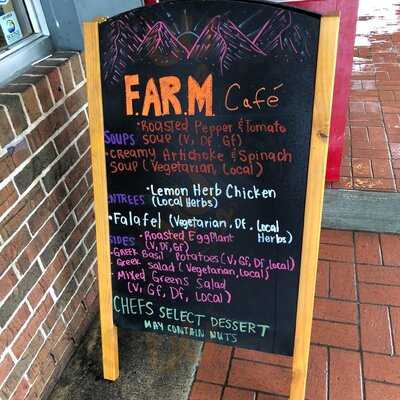 F.A.R.M. Café
SOUPS
• Roasted Pepper & Tomato
Soup (V, Df, Gf)
• Creamy Artichoke & Spinach
Soup (Vegetarian, Local)
ENTREES
• Lemon Herb Chicken
(Local Herbs)
• Falafel (Vegetarian, Df, Local
Herbs)
SIDES
• Roasted Eggplant
(V, Df, Gf)
• Greek Basil Potatoes (V, Gf, Df, Local)
• Greek Salad (Vegetarian, Local)
• Mixed Greens Salad
(V, Gf, Df, Local)
CHEFS SELECT DESSERT
MAY CONTAIN NUTS